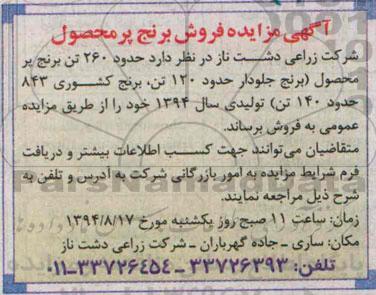 آگهی مزایده فروش برنج پر محصول
شرکت زراعی دشت ناز در نظر دارد حدود ۲۶۰ تن برنج پر
محصول (برنج جلودار حدود ۱۲۰ تن، برنج کشوری ۸۴۳
حدود ۱۴۰ تن) تولیدی سال ۱۳۹۴ خود را از طریق مزایده
عمومی به فروش برساند.
متقاضیان می‌توانند جهت کسب اطلاعات بیشتر و دریافت
فرم شرایط مزایده به امور بازرگانی شرکت به آدرس و تلفن به
شرح ذیل مراجعه نمایند.
زمان: ساعت ۱۱ صبح روز یکشنبه مورخ ۱۳۹۴/۸/۱۷
مکان: ساری ـ جاده گهرباران ـ شرکت زراعی دشت ناز
تلفن: ۳۳۷۲۶۳۹۳ ـ ۳۳۷۲۶۴۵۴-۰۱۱
ParsNamadData